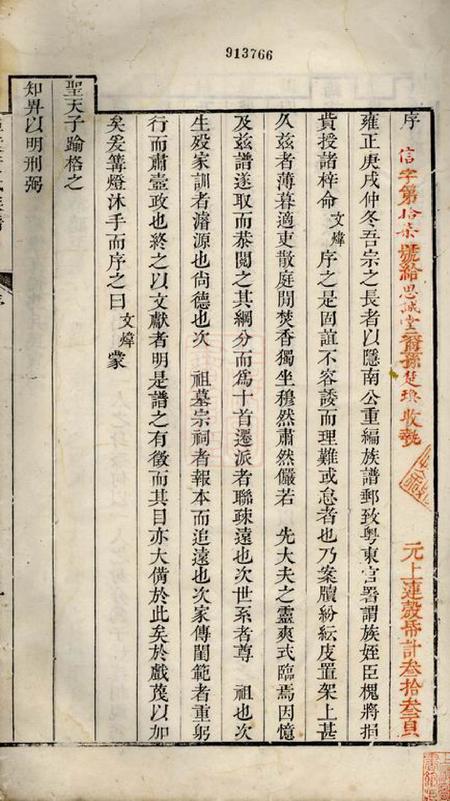 913766
序
信字第拾柒號給思誠堂裔孫楚琅收執
元上連殼帋計叁拾叁頁
雍正庚戌仲冬吾宗之長者以隱南公重編族譜郵致粵東官署謂族姪臣槐將捐
貲授諸梓命文煒序之是固誼不容諉而理難或怠者也乃案牘紛紜庋置架上甚
久茲者薄暮適吏散庭閒焚香獨坐穆然肅然儼若 先大夫之靈爽式臨焉因憶
及茲譜遂取而恭閱之其綱分而為十首遷派者聯疎遠也次世系者尊 祖也次
生歿家訓者濬源也尙德也次 祖墓宗祠者報本而追遠也次家傳閨範者重躬
行而肅壼政也終之以文獻者明是譜之有徵而其目亦大備於此矣於戲茂以加
矣爰篝燈沐手而序之曰文煒蒙
聖天子踰格之
知畀以明刑弼